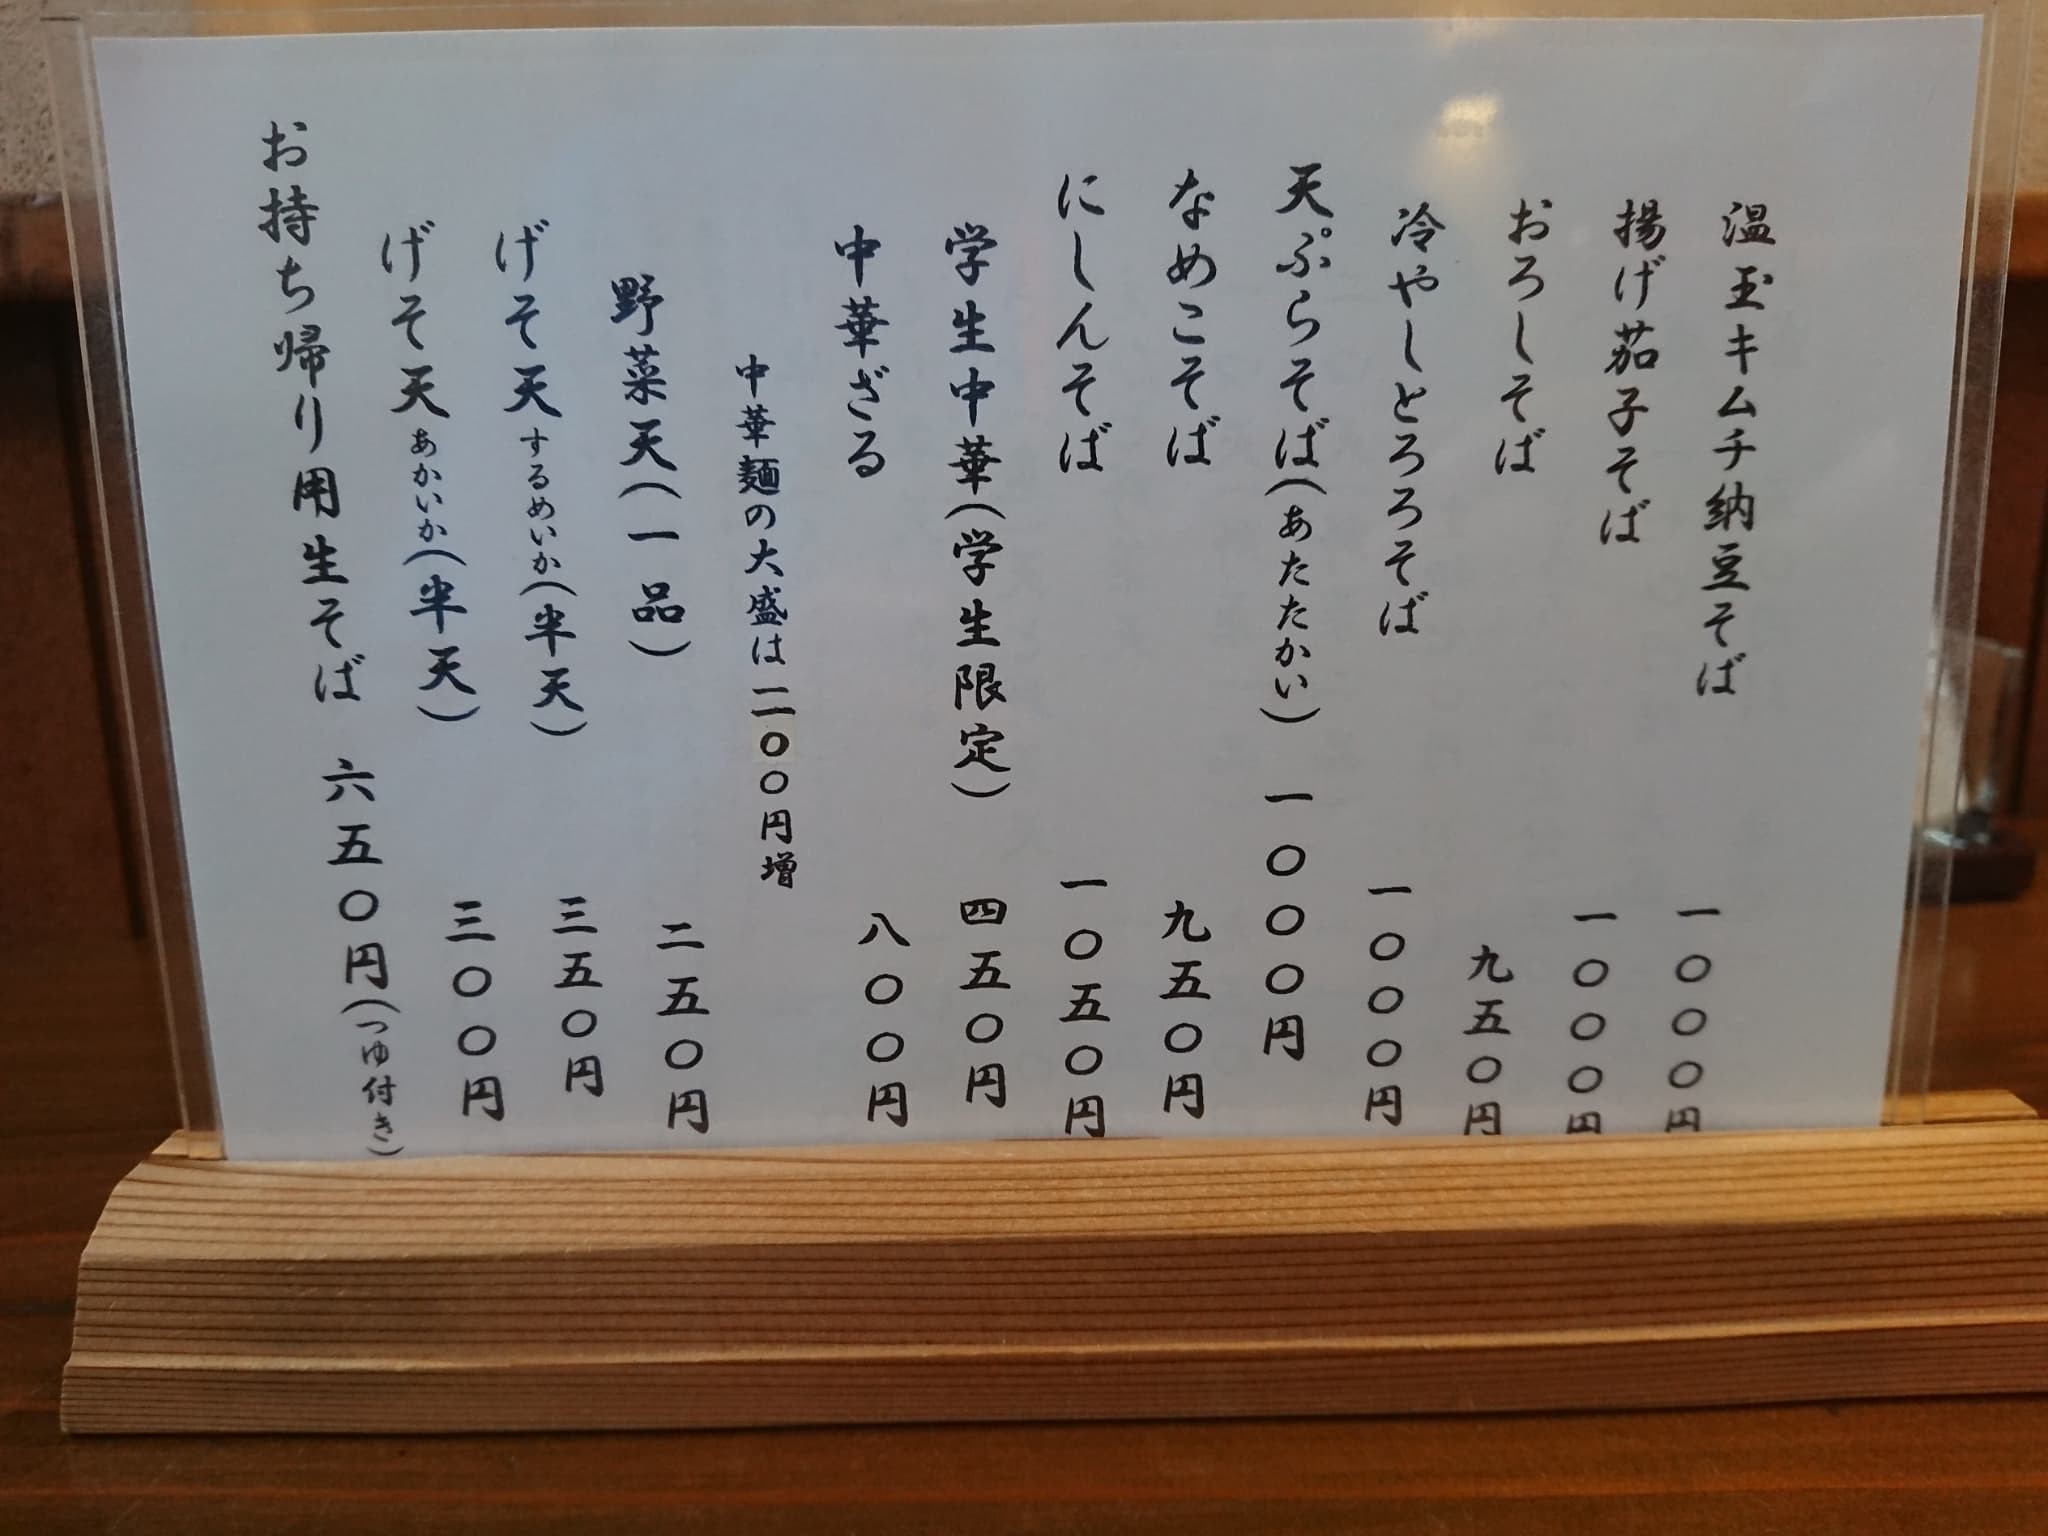 温玉キムチ納豆そば 一〇〇〇円
揚げ茄子そば 一〇〇〇円
おろしそば 九五〇円
冷やしとろろそば 一〇〇〇円
天ぷらそば(あたたかい) 一〇〇〇円
なめこそば 九五〇円
にしんそば 一〇五〇円
学生中華(学生限定) 四五〇円
中華ざる 八〇〇円
中華麺の大盛は二〇〇円増
野菜天(一品) 二五〇円
げそ天するめいか(半天) 三五〇円
げそ天あかいか(半天) 三〇〇円
お持ち帰り用生そば 六五〇円(つゆ付き)